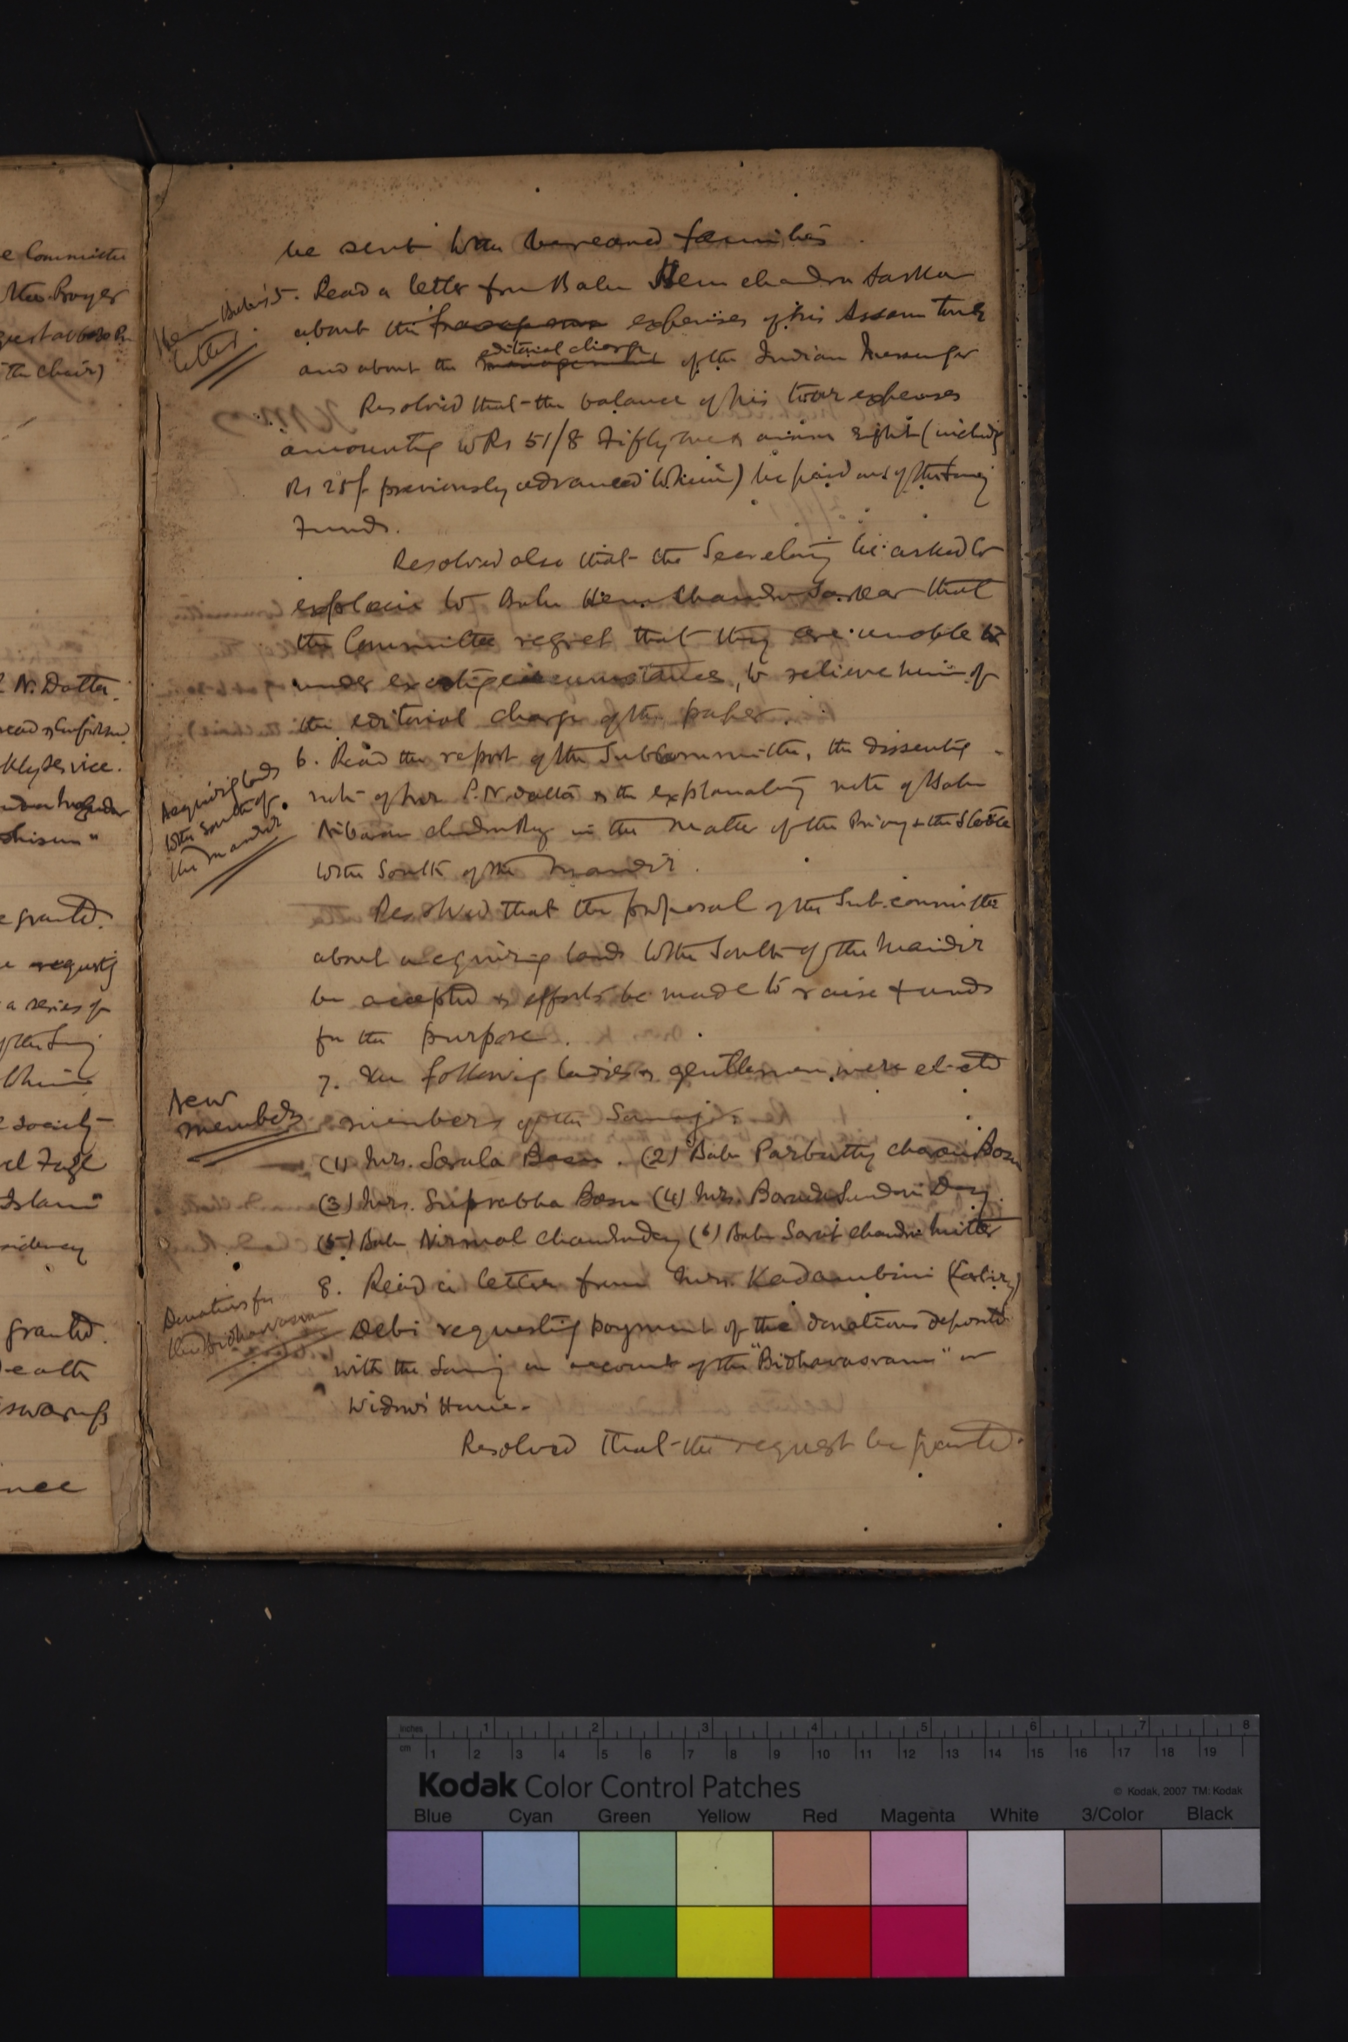 e Committee
the Prayer
the chair)
N. Datta.
kly service.
shism"
e granted.
requestg
a series of
of the Samaj
e society
Islam"
sidency
granted.
Death
be sent to the bereaved families.
Hem Babu's
letter.
5. Read a letter from Babu Hem chandra Sarkar
about the expenses of his Assam tour
editorial charge
and about the management of the Indian Messenger
Resolved that the balance of his tour expenses
amounting to Rs 51/8 Fifty one & annas eight (includg
Rs 25/- previously advanced to him) be paid out of the Samaj
Funds.
Resolved also that the Secretary be asked to
explain to Babu Hem Chandra Sarkar that
the Committee regret that they are unable to
under existing circumstances, to relieve him of
the editorial charge of the paper.
Acquiring lands
to the South of
the Mandir
6. Read the report of the Subcommittee, the dissentig
note of P. N. Datta & the explanatory note of Babu
Nibaran chandra Roy in the matter of the Privy & the Stable
to the South of the Mandir.
Resolved that the proposal of the Sub-committee
about acquiring lands to the South of the Mandir
be accepted & efforts be made to raise funds
for the purpose.
New
members
7. The following ladies & gentlemen were elected
members of the Samaj:
(1) Mrs. Sarala Bose. (2) Babu Parbutty charan Bose
(3) Mrs. Suprabha Bose (4) Mrs. Barada Sundari Dey.
(5) Babu Nirmal Chandra Dey (6) Babu Sarat chandra Mitter
Donations for
the Bidhavasram
8. Read a letter from Mrs. Kadambini
Debi requesting payment of the donations deposited
with the Samaj on account of the "Bidhavasram" or
Widows' Home.
Resolved that the request be granted.
inches 1 2 3 4 5 6 7 8
cm 1 2 3 4 5 6 7 8 9 10 11 12 13 14 15 16 17 18 19
Kodak Color Control Patches © Kodak, 2007 TM: Kodak
Blue Cyan Green Yellow Red Magenta White 3/Color Black